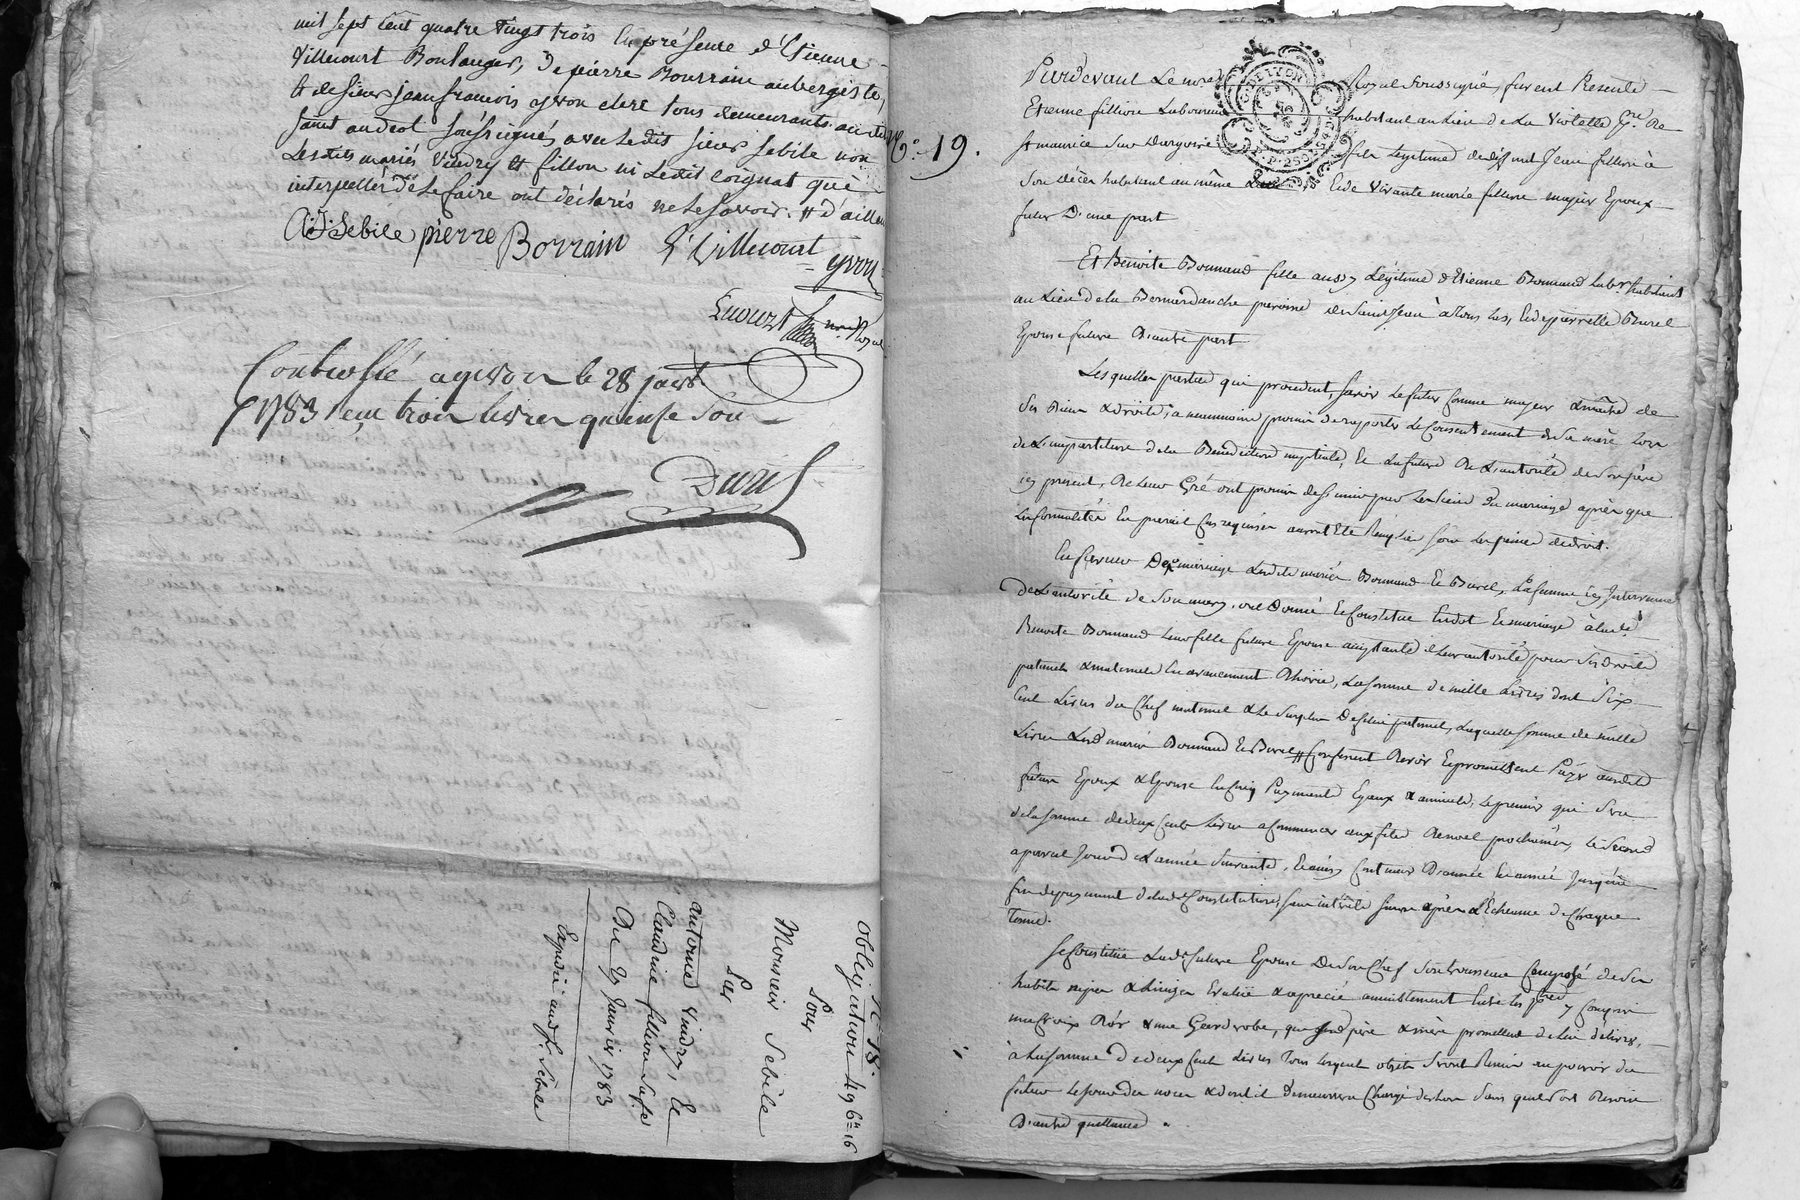 mil sept cent quatre vingt trois En présence d'Etienne
Villecourt Boulanger, De pierre Bourrain aubergiste,
Et de sieur jean francois yvon clerc tous demeurants audit
saint andeol soussignés avec ledit sieur sebile non
Lesdits mariés Vindry Et fillon ni Ledit coignat que
interpellés De le faire ont déclarés ne le savoir. # d'ailleu
A:D:Sebile pierre Borrain E Villecourt
yvon
not Royal
Controllé a givors le 28 janv
1783 reçu trois livres quinse sou
Duris
N° 18.
Obligation 449 16
Pour
Monsieur Sebile
Par
antoine Vindry, Et
Claudine fillion sa fe
Du 27 Janvier 1783
Expedié aud S. Sebile
N° 19.
G. DE LYON
Pardevant Le no re Royal Soussigné furent Presents
Etienne fillion Laboureur habitant au Lieu de La Violette P. De
St maurice Sur Dargoire fils Legitime dedéfunt Jean fillion à
Son décès habitant au même Lieu, Et de Vivante marie fillion majeur Epoux
futur D'une part
Et Benoite Bonnand fille aussy Légitime d'Etienne Bonnand Lab.r habitant
au Lieu de la Bernardauche paroisse de Saint Jean à Tous Las, Et de pierrette Burel
Epouse future D'autre part
Lesquelles parties qui procedent, Savoir Le futur Comme majeur & maitre de
Ses Biens & droits, a neanmoins promis de raporter le Consentement de Sa mère Lors
de L'impartition de la Bénédiction nuptiale, Et La future De L'autorité de Son père
icy present, De Leur Gré ont promis de S'unir par Les Liens du mariage après que
Les formalités En pareil Cas requises auront Eté Remplies Sous Les peines de droit.
En faveur De ce mariage Lesdits mariés Bonnand Et Burel, La femme icy Intervenue
De L'autorité de Son mary, ont Donné Et Constitué En dot Et mariage à lad.
Benoite Bonnand Leur fille future Epouse acceptante de Leur autorité pour Ses Droits
paternels & maternels En avancement d'hoirie, La Somme de mille Livres dont Six
Cent Livres du Chef maternel & Le Surplus De Celui paternel, Laquelle Somme de mille
Livres Lesd mariés Bonnand Et Burel # Confessent Devoir Et promettent Payer auxdits
futurs Epoux & Epouse En Cinq Payments Egaux & annuels, Le premier qui Sera
de La Somme de deux Cents Livres a Commencer aux fêtes De noel prochaines, Le Second
a pareil Jour de L'année Suivante, Et ainsi Continuer D'année En année Jusqu'à
fin de payement de lad. Constitution, Sans intérêts Sinon après L'Echeance de Chaque
Terme.
Se Constitue Lad. future Epouse De Son Chef Son trousseau Composé de Ses
habits nipes & Linges Evalué & aprecié amiablement Entre les parties y Compris
une Croix D'or & une Garderobe, que Sesd père & mère promettent de Lui délivrer,
à La Somme de deux Cents Livres Tous Lesquels objets Seront Remis au pouvoir du
futur Le Jour des noces & dont il Demeurera Chargé dès lors Sans qu'il Soit Besoin
D'autre quittance.